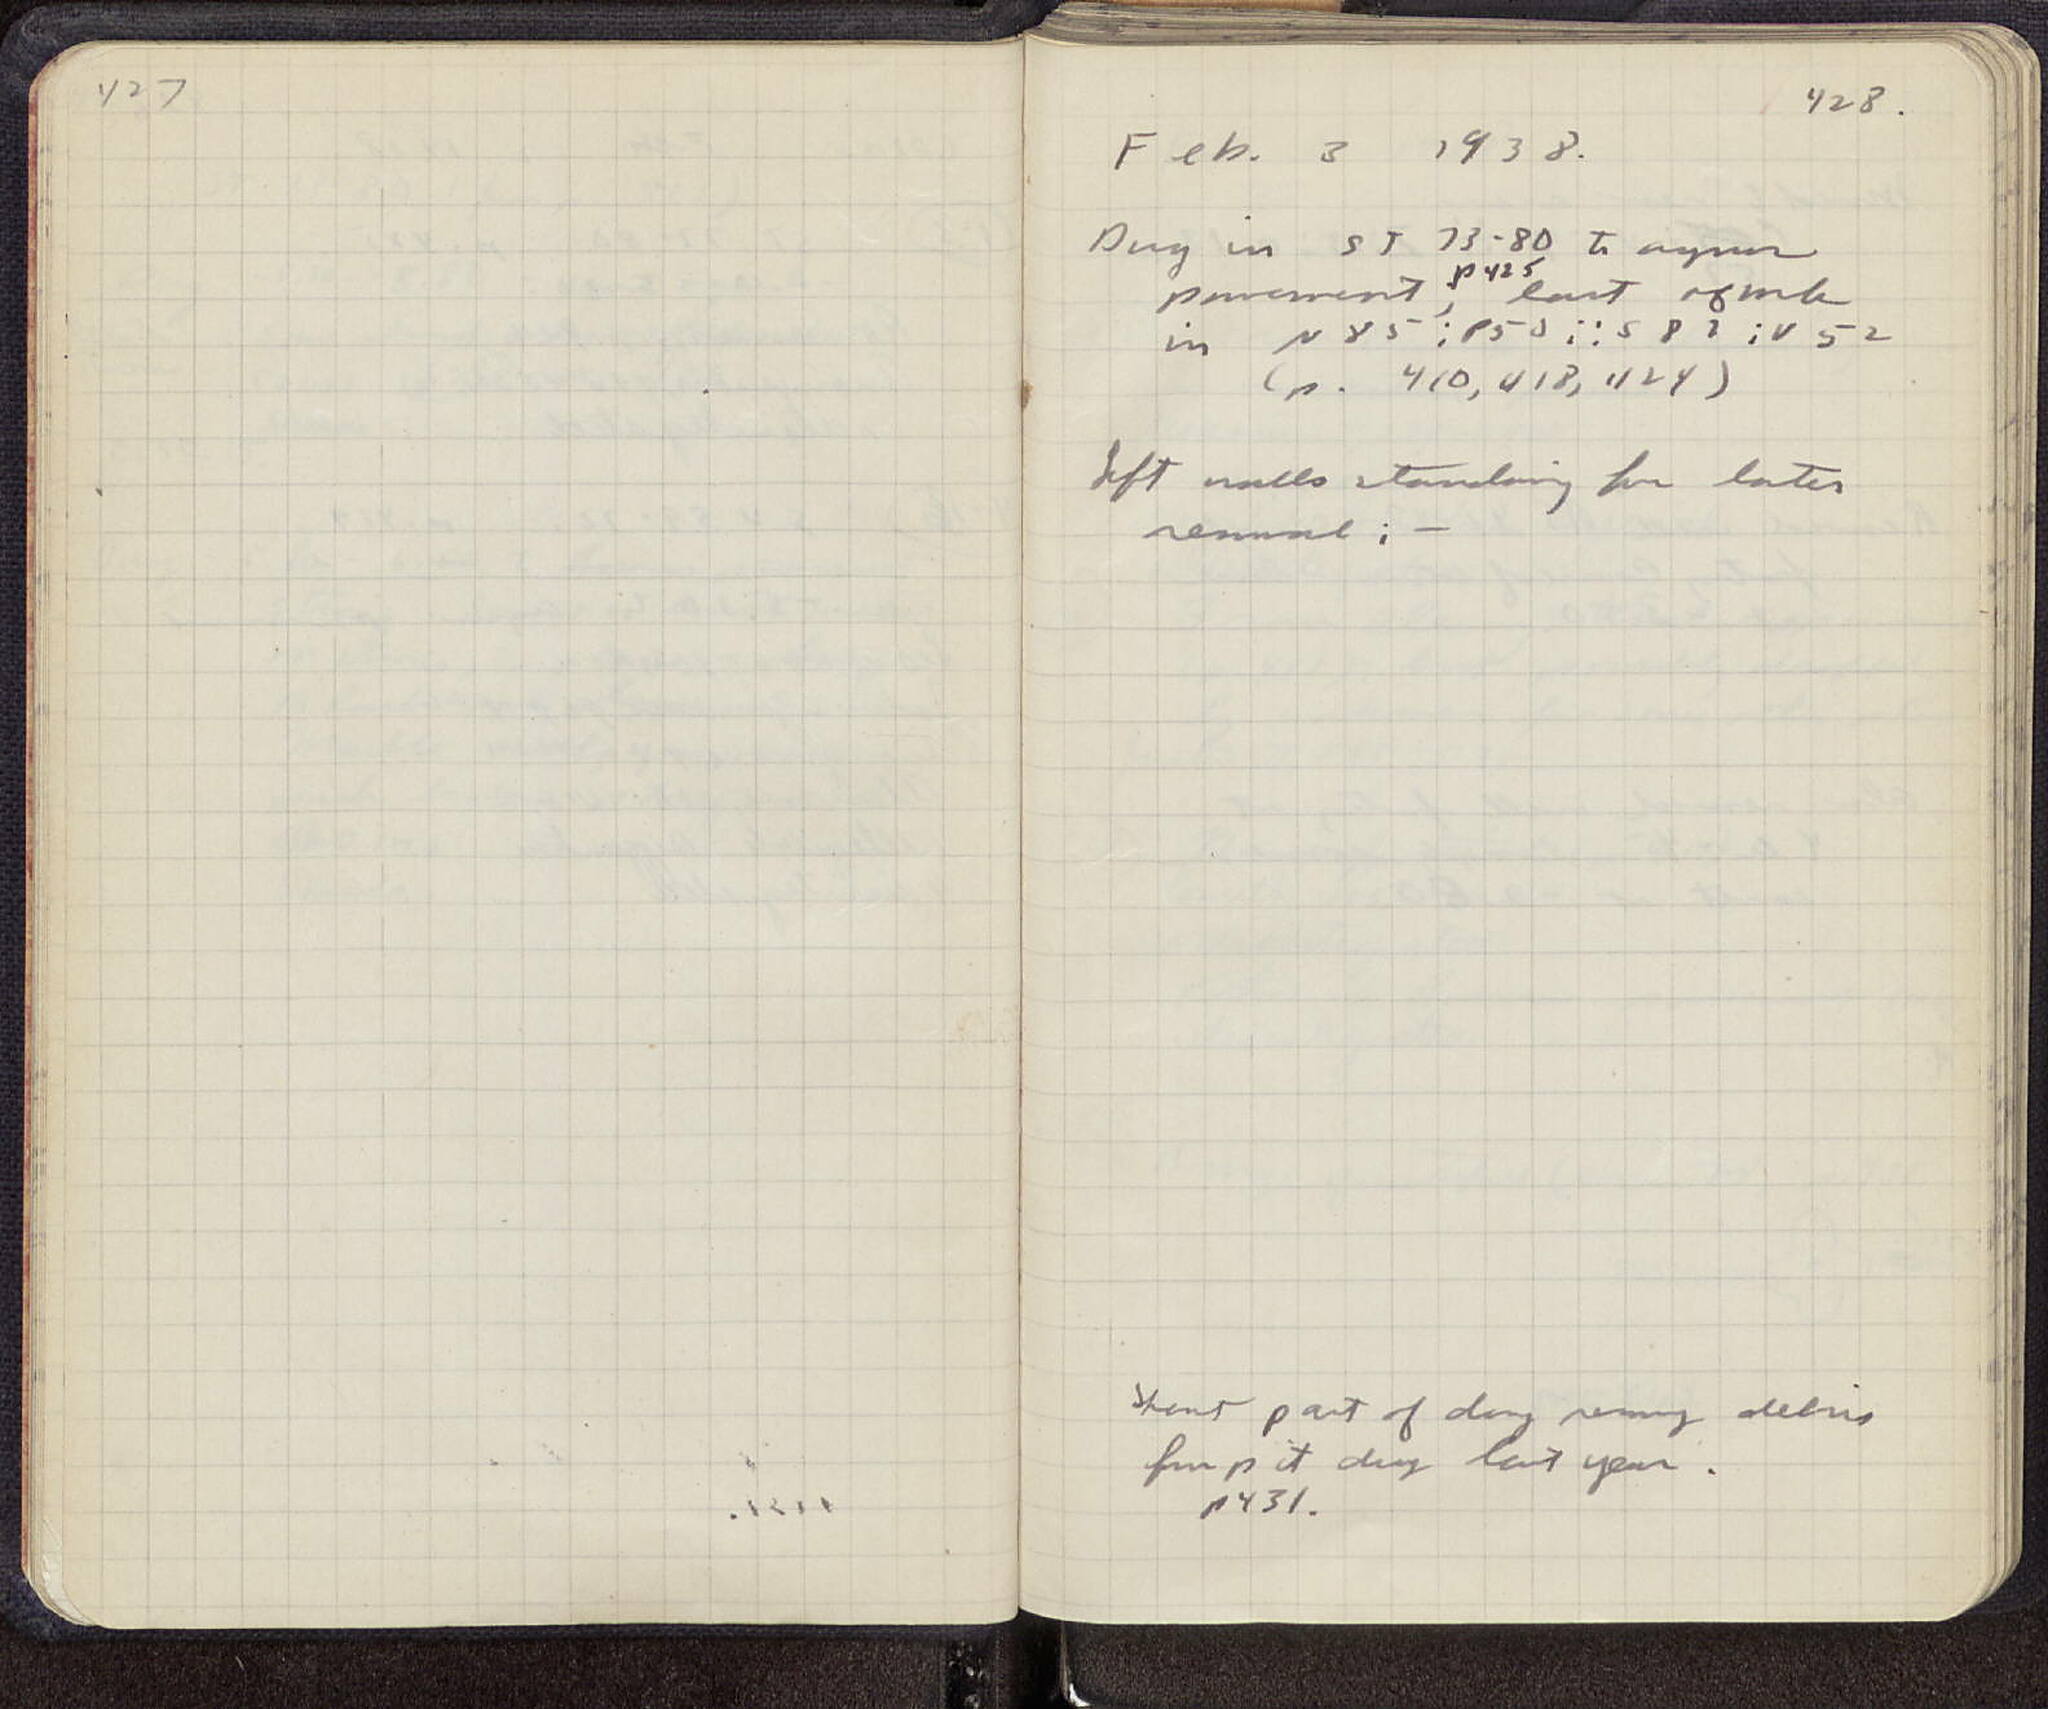 427
428.
Feb. 3 1938.
Dug in ST 73-80 to
pavement, p425 last
in N 85; P50;; S 82; V 52
(p. 410, 418, 424)
Left walls standing for later
removal; —
Spent part of day debris
from pit dug last year.
p431.